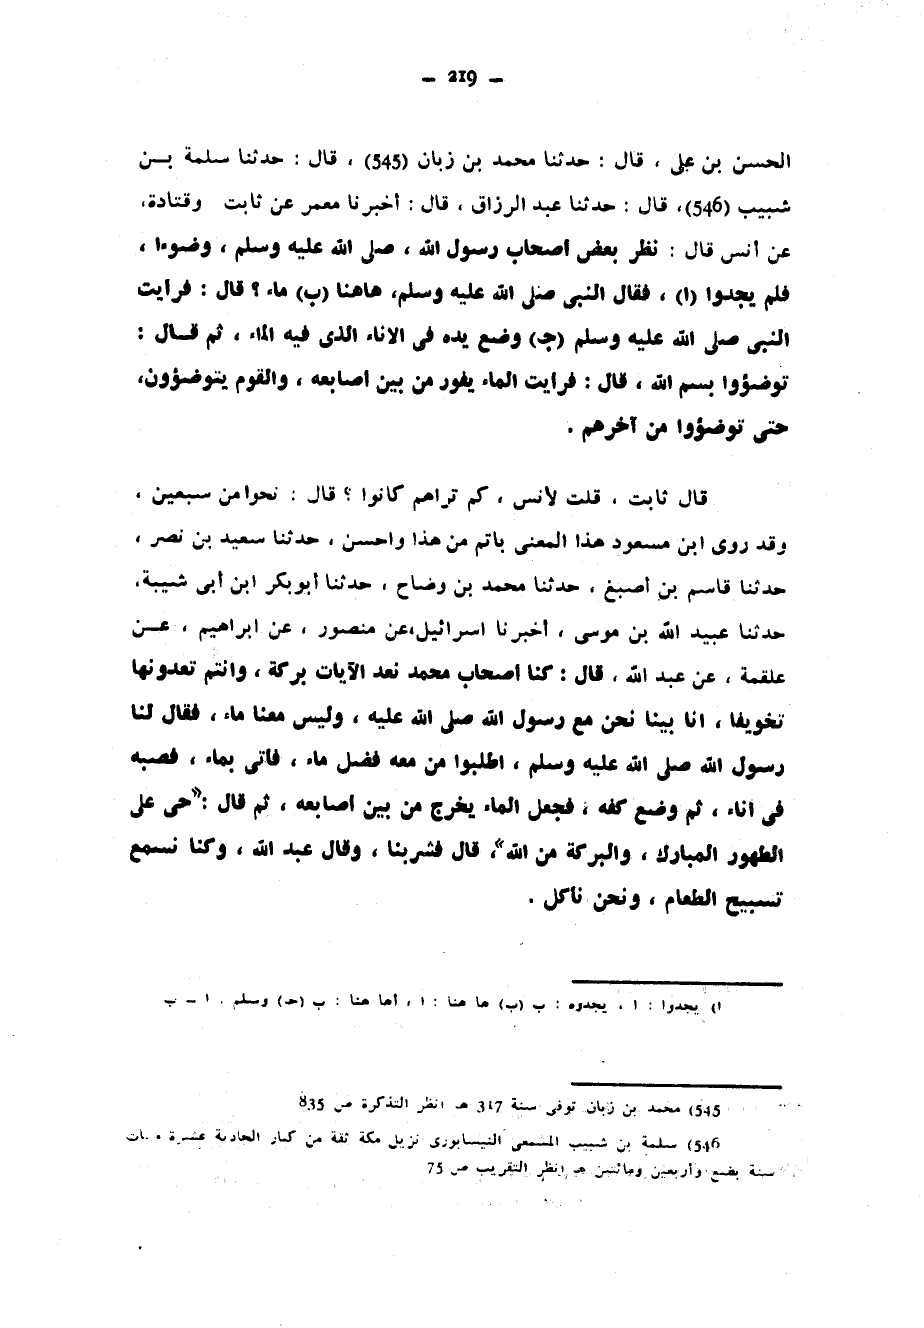 — 219 —
الحسن بن على ، قال : حدثنا محمد بن زبان (545) ، قال : حدثنا سلمة بـــن
شبيب (546)، قال : حدثنا عبد الرزاق ، قال : أخبرنا معمر عن ثابت وقتادة،
عن أنس قال : نظر بعض أصحاب رسول الله ، صلى الله عليه وسلم ، وضوءا ،
فلم يجدوا (ا) ، فقال النبى صلى الله عليه وسلم، هاهنا (ب) ماء ؟ قال : فرأيت
النبى صلى الله عليه وسلم (جـ) وضع يده فى الاناء الذى فيه الماء ، ثم قــال :
توضؤوا بسم الله ، قال : فرأيت الماء يفور من بين أصابعه ، والقوم يتوضؤون،
حتى توضؤوا من آخرهم .
قال ثابت ، قلت لأنس ، كم تراهم كانوا ؟ قال : نحوا من سبعين ،
وقد روى ابن مسعود هذا المعنى باتم من هذا واحسن ، حدثنا سعيد بن نصر ،
حدثنا قاسم بن أصبغ ، حدثنا محمد بن وضاح ، حدثنا أبوبكر ابن أبى شيبة،
حدثنا عبيد الله بن موسى ، أخبرنا اسرائيل،عن منصور ، عن ابراهيم ، عــن
علقمة ، عن عبد الله ، قال : كنا أصحاب محمد نعد الآيات بركة ، وانتم تعدونها
تخويفا ، انا بينا نحن مع رسول الله صلى الله عليه ، وليس معنا ماء ، فقال لنا
رسول الله صلى الله عليه وسلم ، اطلبوا من معه فضل ماء ، فأتى بماء ، فصبه
فى اناء ، ثم وضع كفه ، فجعل الماء يخرج من بين اصابعه ، ثم قال :«حى على
الطهور المبارك ، والبركة من الله»، قال فشربنا ، وقال عبد الله ، وكنا نسمع
تسبيح الطعام ، ونحن نأكل .
ا) يجدوا : ا ، يجدوه : ب (ب) ها هنا : ا ، أها هنا : ب (جـ) وسلم . ا ــ ب
545) محمد بن زبان توفى سنة 317 هـ انظر التذكرة ص 835
546) سلمة بن شبيب المسمعى النيسابورى نزيل مكة ثقة من كبار الحادية عشرة ، مات
سنة بضع وأربعين ومائتين هـ انظر التقريب ص 75